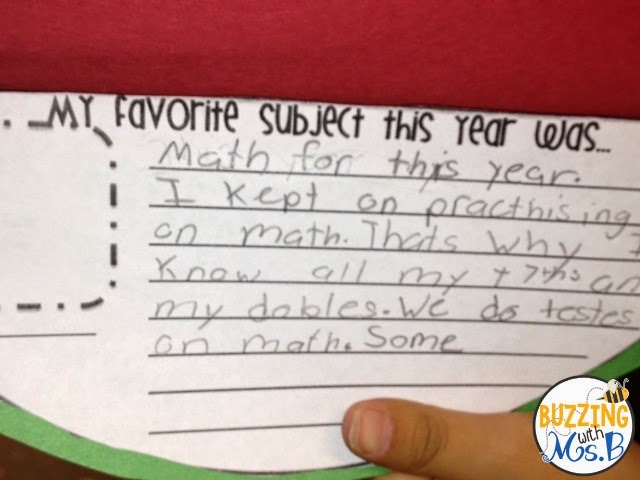 . My favorite subject this year was...
Math for this year.
I kept on practhising
on math. Thats why I
know all my + 7ths an
my dobles. We do testes
on math. Some
BUZZING
with
Ms. B